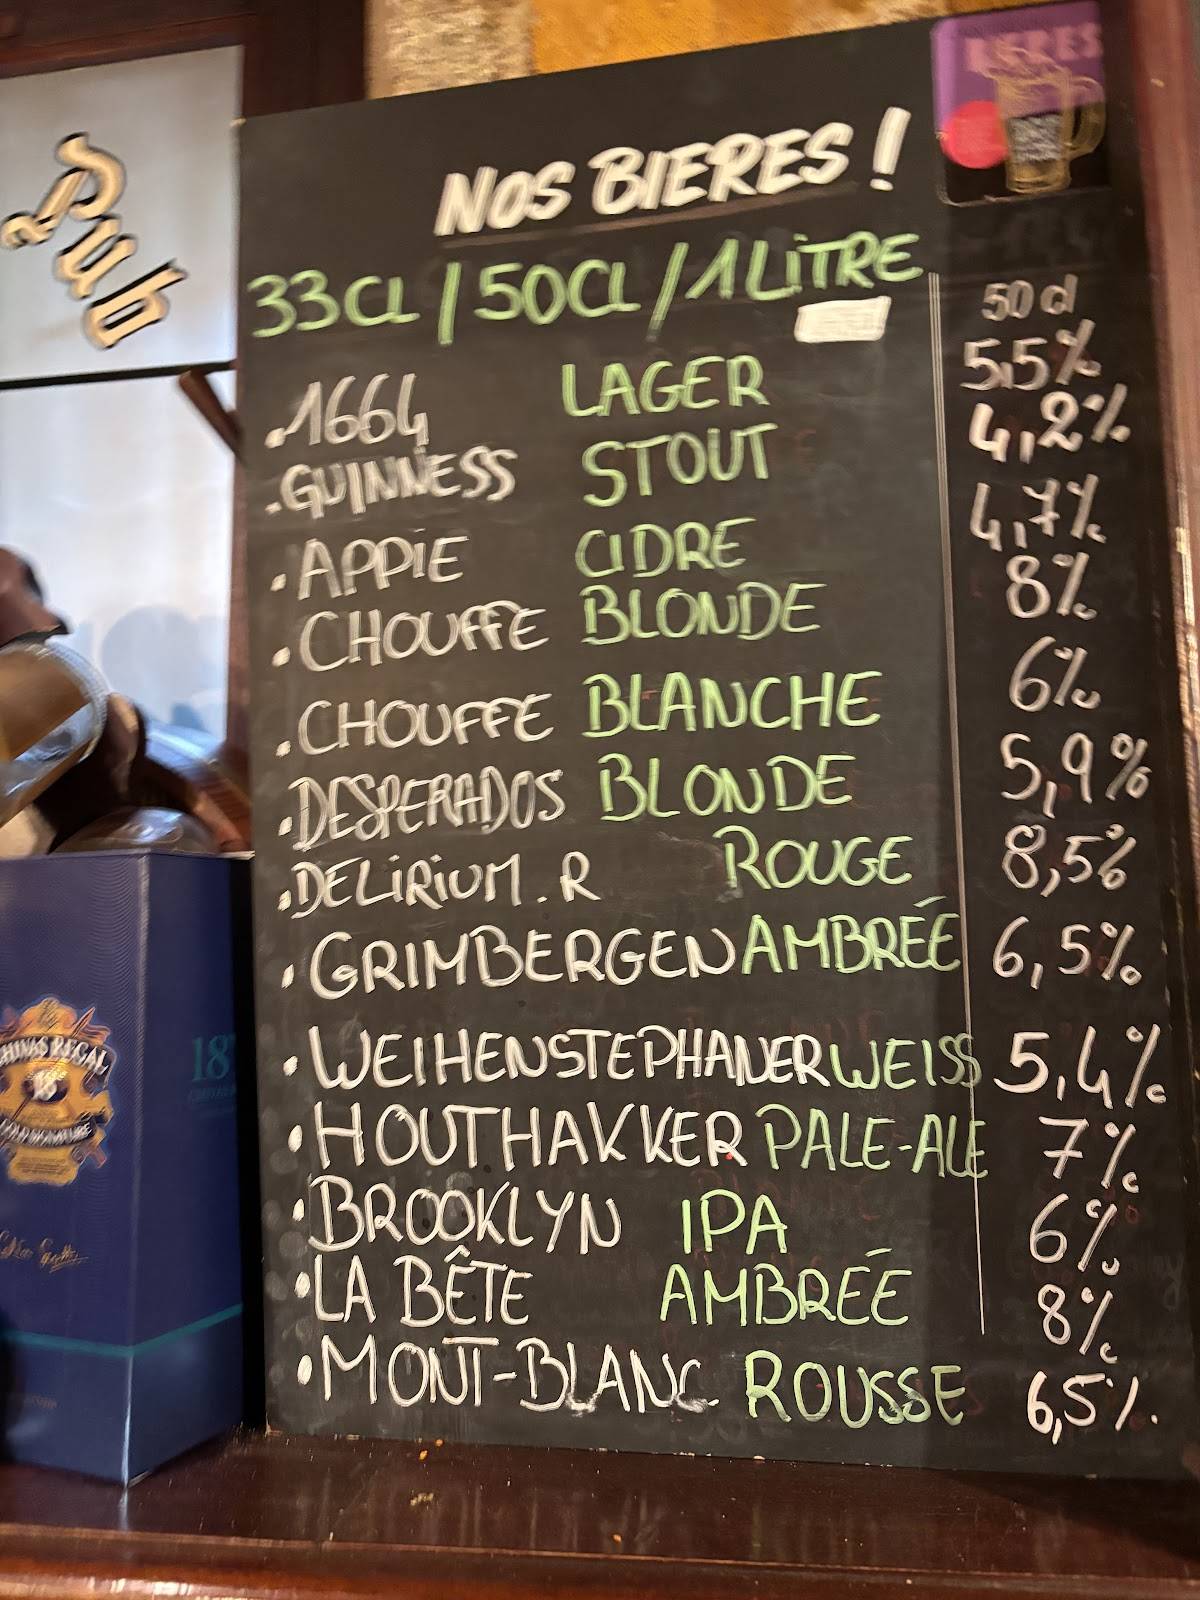 Pub
NOS BIERES !
33CL / 50CL / 1 LITRE
50 cl
.1664 LAGER 5,5%
.GUINNESS STOUT 4,2%
.APPIE CIDRE 4,7%
.CHOUFFE BLONDE 8%
.CHOUFFE BLANCHE 6%
.DESPERADOS BLONDE 5,9%
.DELIRIUM . R ROUGE 8,5%
.GRIMBERGEN AMBRÉE 6,5%
.WEIHENSTEPHANER WEISS 5,4%
.HOUTHAKKER PALE-ALE 7%
.BROOKLYN IPA 6%
.LA BÊTE AMBRÉE 8%
.MONT-BLANC ROUSSE 6,5%
CHIVAS REGAL
18
GOLD SIGNATURE
18